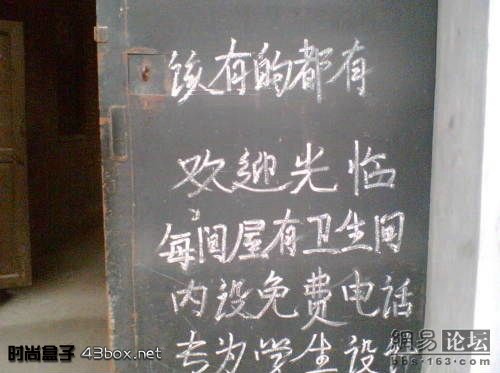 该有的都有
欢迎光临
每间屋有卫生间
内设免费电话
专为学生设
时尚盒子 43box.net
网易 论坛
bbs.163.com